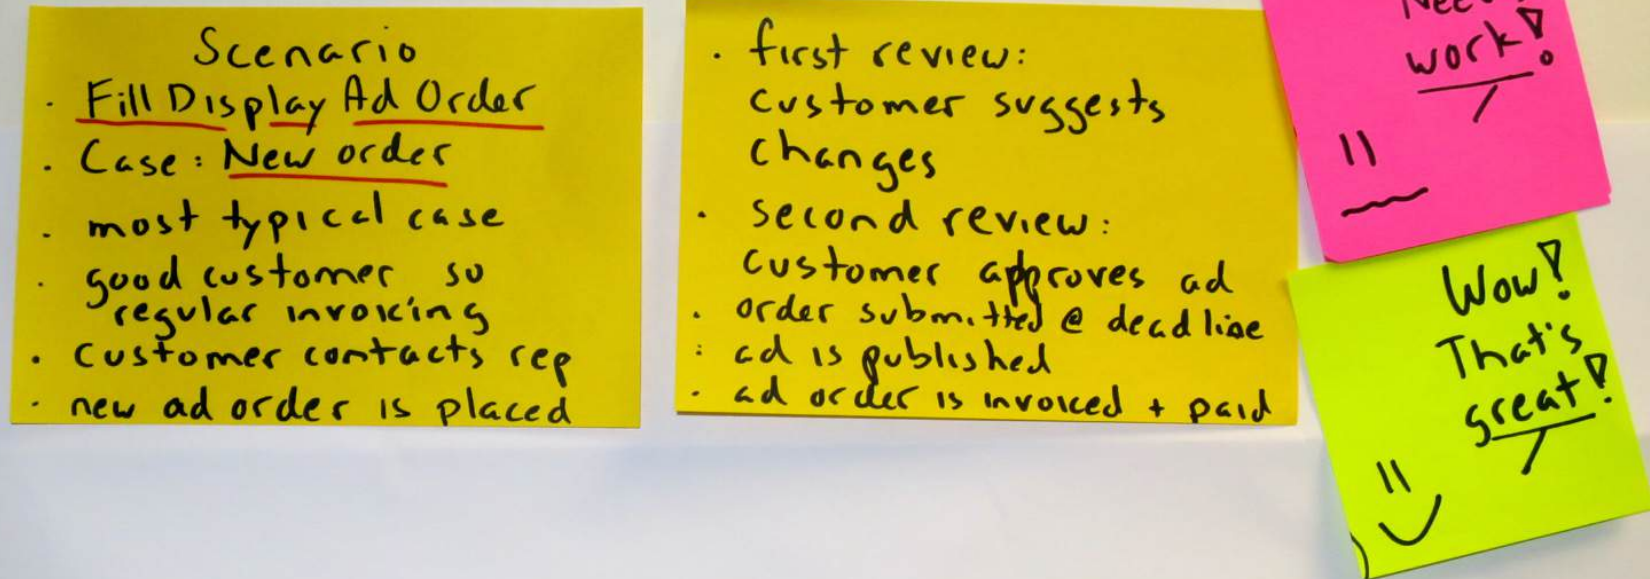 Scenario
· Fill Display Ad Order
· Case: New order
· most typical case
· good customer so
regular invoicing
· customer contacts rep
· new ad order is placed
· first review:
customer suggests
changes
· second review:
customer approves ad
· order submitted @ deadline
: ad is published
· ad order is invoiced + paid
work!
Wow!
That's
great!